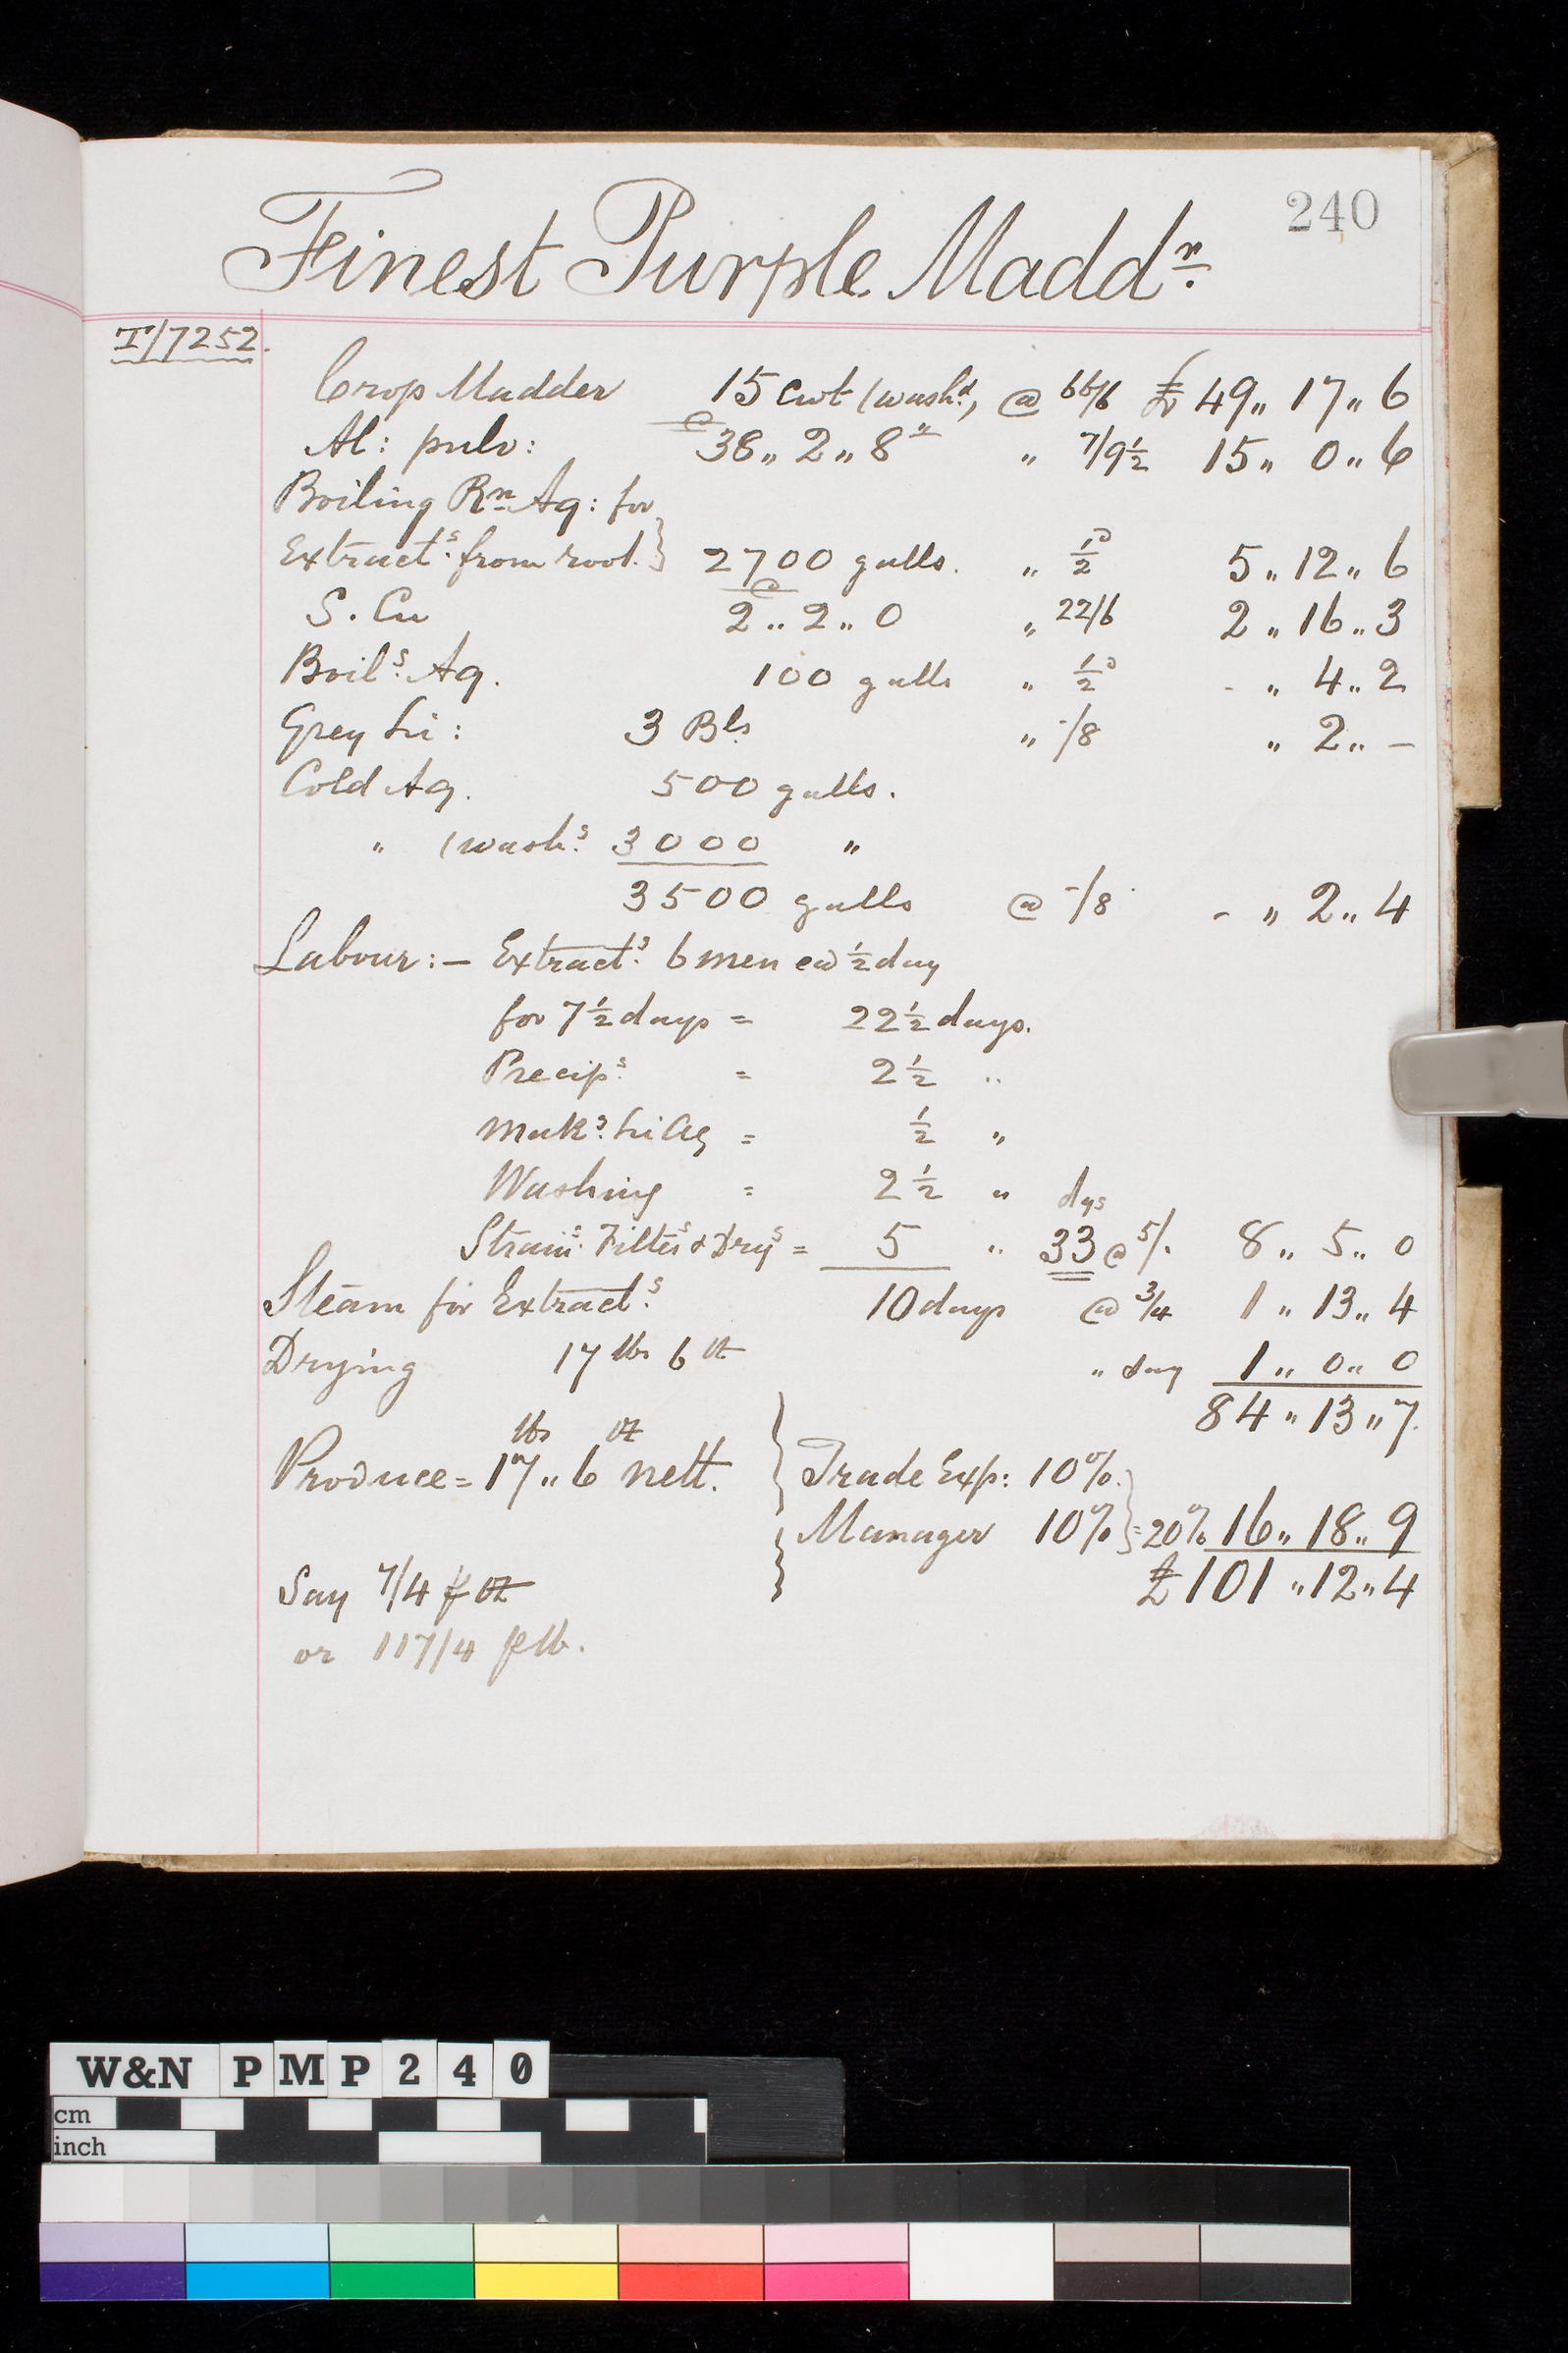 240
Finest Purple Maddr.
T/7252.
Crop Madder 15 cwt (washd) @ 66/6 £ 49 " 17 " 6
Al: pulv: 38 " 2 " 8 " 7/9½ 15 " 0 " 6
Boiling Rn Aq: for
Extracts. from root. } 2700 galls. " ½D 5 " 12 " 6
S. Cu 2 " 2 " 0 " 22/6 2 " 16 " 3
Boils. Aq. 100 galls " ½D - " 4 " 2
Grey Li: 3 Bls " -/8 " 2 " -
Cold Aq. 500 galls.
" (washs. 3000 "
3500 galls @ -/8 - " 2 " 4
Labour :- Extracts. 6 men ea ½ day
for 7½ days = 22½ days.
Precips. = 2½ "
Maks. Li Aq = ½ "
Washing = 2½ " dys
Strains. Filters & Drys = 5 " 33 @ 5/. 8 " 5 " 0
Steam for Extracts. 10 days @ 3/4 1 " 13 " 4
Drying 17 lbs 6 oz " day 1 " 0 " 0
84 " 13 " 7.
lbs oz
Produce = 17 " 6 nett. } Trade Exp: 10%.
Manager 10% } = 20% 16 " 18 " 9
£ 101 " 12 " 4
Say 7/4 ℔ oz
or 117/4 ℔ lb.
W&N PMP240
cm
inch